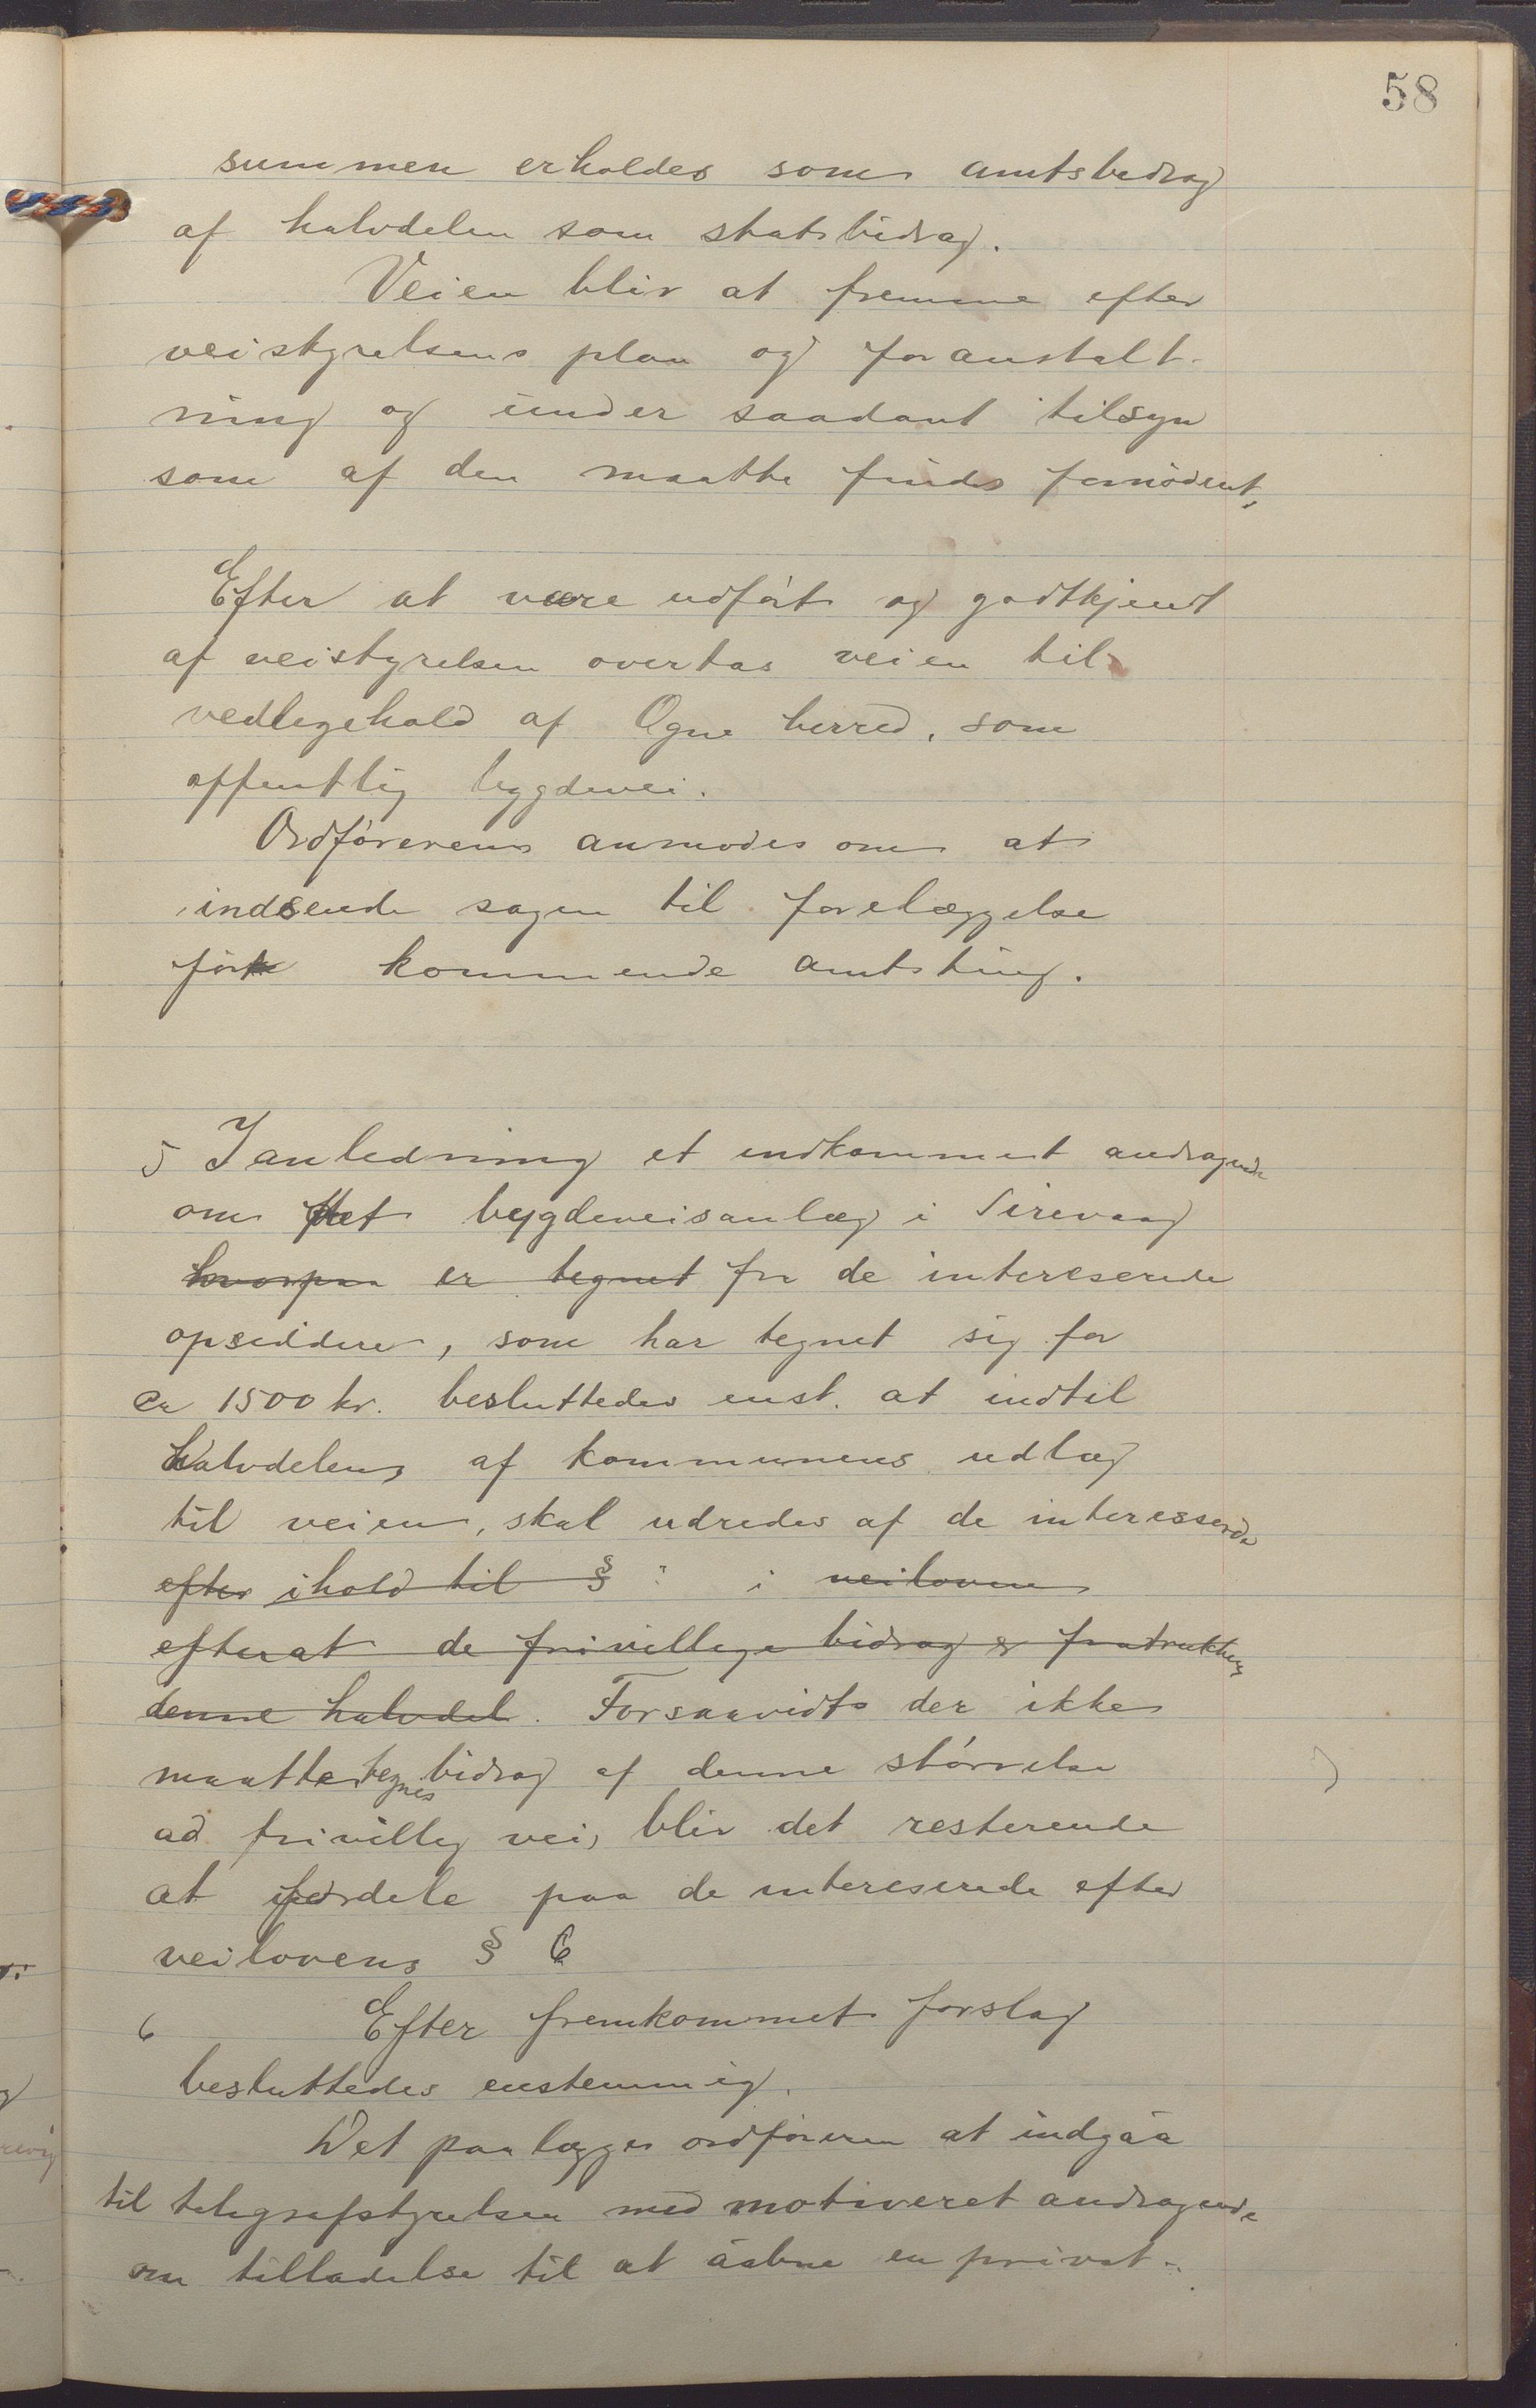 58
summen erholdes som amtsbidrag
af halvdelen som statsbidrag.
Veien blir at fremme efter
veistyrelsens plan og foranstalt-
ning og under saadant tilsyn
som af den maatte findes fornødent,
Efter at være udført og godtkjendt
af veistyrelsen overtas veien til
vedligehold af Ogne herred, som
offentlig bygdevei.
Ordføreren anmodes om at
indsende sagen til forelæggelse
for kommende amtsting.
5 I anledning et indkommet andragende
om et bygdeveisanlæg i Sirevaag
hvorpaa er tegnet fra de intereserede
opsiddere, som har tegnet sig for
ca 1500 kr. besluttedes enst. at indtil
halvdelen af kommunens udlæg
til veien, skal udredes af de interesserede
efter ihold til § i veiloven
efterat de frivillige bidrag er fratrukket
denne halvdel. Forsaavidt der ikke
maatte tegnes bidrag af denne størrelse
ad frivillig vei, blir det resterende
at fordele paa de intereserede efter
veilovens § 6
6 Efter fremkommet forslag
besluttedes enstemmig.
Det paalægges ordføreren at indgaa
til telegrafstyrelsen med motiveret andragende
om tilladelse til at aabne en privat-